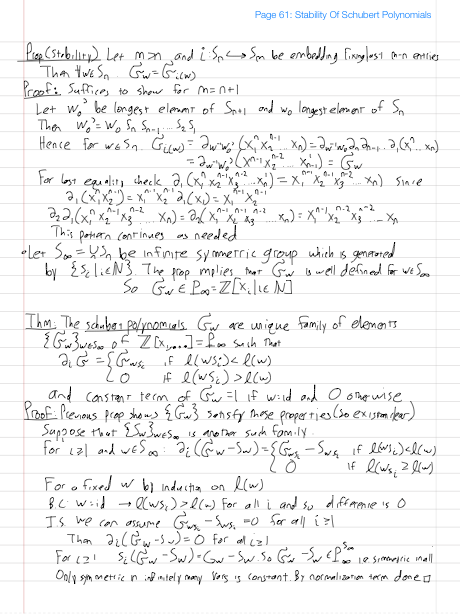 Page 61: Stability Of Schubert Polynomials
Prop (Stability) Let m>n and i: Sₙ ↪ Sₘ be embedding fixing last m-n entries
Then ∀w∈Sₙ 𝔖_w = 𝔖_{i(w)}
Proof: Suffices to show for m=n+1
Let w₀' be longest element of Sₙ₊₁ and w₀ longest element of Sₙ
Then w₀' = w₀ Sₙ Sₙ₋₁ ... S₂ S₁
Hence for w∈Sₙ 𝔖_{i(w)} = ∂_{w⁻¹w₀'}(x₁ⁿ x₂ⁿ⁻¹ ... xₙ) = ∂_{w⁻¹w₀} ∂ₙ ∂ₙ₋₁ .. ∂₁(x₁ⁿ ... xₙ)
= ∂_{w⁻¹w₀}(x₁ⁿ⁻¹ x₂ⁿ⁻² ... xₙ₋₁) = 𝔖_w
For last equality check ∂₁(x₁ⁿ x₂ⁿ⁻¹ x₃ⁿ⁻² ... xₙ) = x₁ⁿ⁻¹ x₂ⁿ⁻¹ x₃ⁿ⁻² ... xₙ since
∂₁(x₁ⁿ x₂ⁿ⁻¹) = x₁ⁿ⁻¹ x₂ⁿ⁻¹ ∂₁(x₁) = x₁ⁿ⁻¹ x₂ⁿ⁻¹
∂₂∂₁(x₁ⁿ x₂ⁿ⁻¹ x₃ⁿ⁻² ... xₙ) = ∂₂(x₁ⁿ⁻¹ x₂ⁿ⁻¹ x₃ⁿ⁻² ... xₙ) = x₁ⁿ⁻¹ x₂ⁿ⁻² x₃ⁿ⁻² ... xₙ
This pattern continues as needed
• Let S∞ = ∪Sₙ be infinite symmetric group which is generated
by {Sᵢ | i∈ℕ}. The prop implies that 𝔖_w is well defined for w∈S∞
So 𝔖_w ∈ P∞ = ℤ[xᵢ | i∈ℕ]
Thm: The schubert polynomials 𝔖_w are unique family of elements
{𝔖_w}_{w∈S∞} of ℤ[x₁,...] = P∞ such that
∂ᵢ 𝔖 = { 𝔖_{wsᵢ} if l(wsᵢ) < l(w)
0 if l(wsᵢ) > l(w)
and constant term of 𝔖_w = 1 if w=id and 0 otherwise
Proof: Previous prop shows {𝔖_w} satisfy these properties (so exist clear)
Suppose that {S_w}_{w∈S∞} is another such family
For i≥1 and w∈S∞: ∂ᵢ(𝔖_w - S_w) = { 𝔖_{wsᵢ} - S_{wsᵢ} if l(wsᵢ) < l(w)
0 if l(wsᵢ) ≥ l(w)
For a fixed w by induction on l(w)
B.C: w=id → l(wsᵢ) > l(w) for all i and so difference is 0
I.S. we can assume 𝔖_{wsᵢ} - S_{wsᵢ} = 0 for all i≥1
Then ∂ᵢ(𝔖_w - S_w) = 0 for all i≥1
For i≥1 sᵢ(𝔖_w - S_w) = 𝔖_w - S_w. So 𝔖_w - S_w ∈ P∞^{S∞} i.e. symmetric in all
Only symmetric in infinitely many vars is constant. By normalization term done □